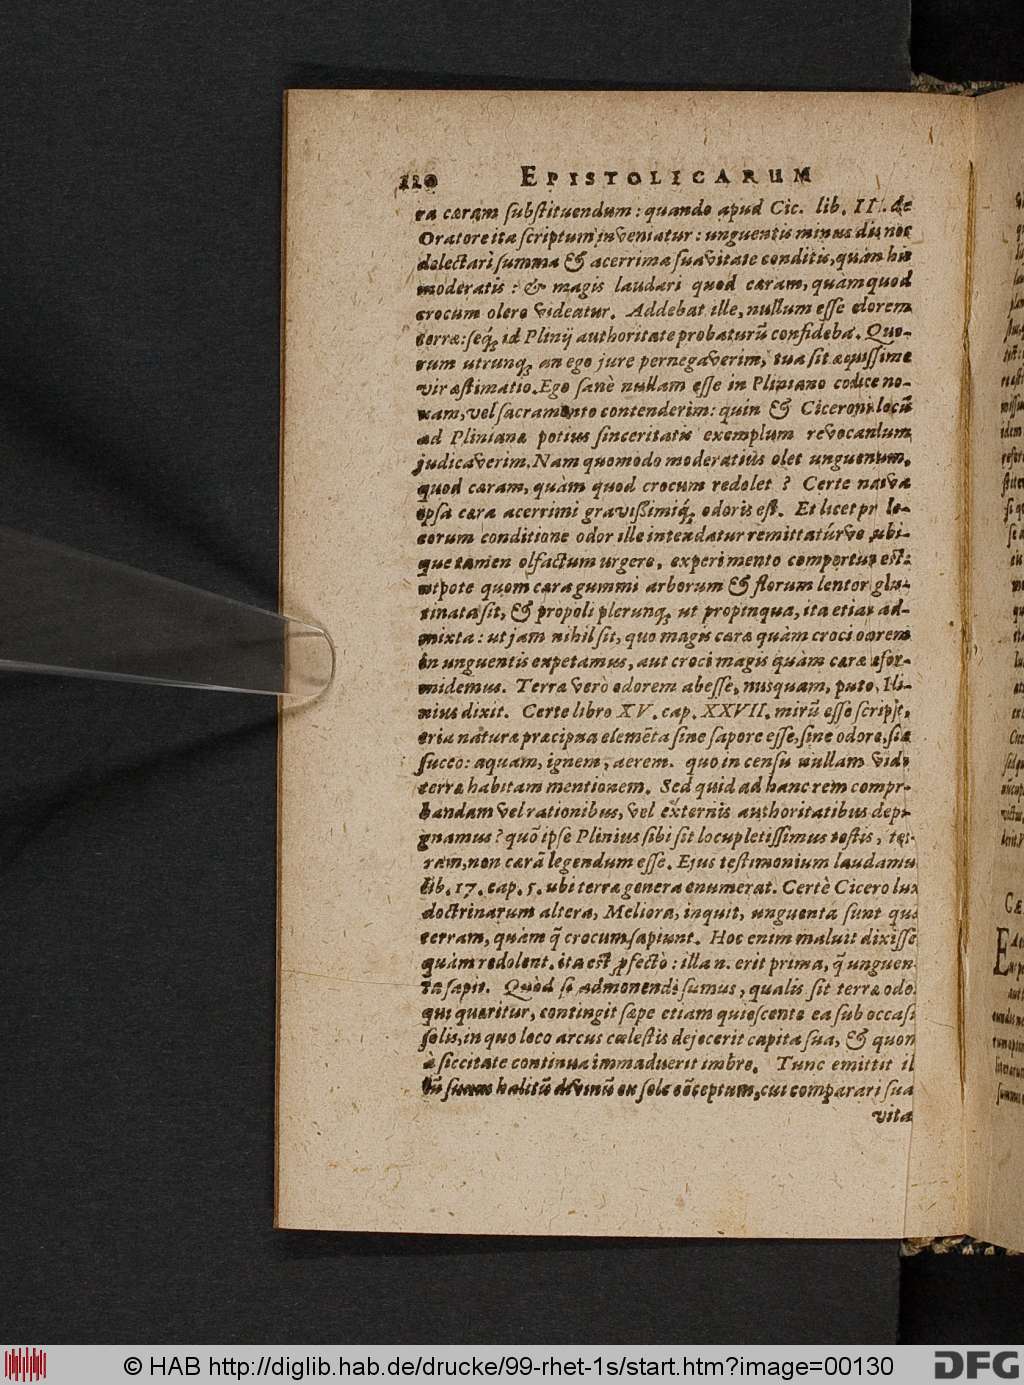 120 EPISTOLICARUM
ra ceram ſubſtituendum: quando apud Cic. lib. II. de
Oratore ita ſcriptum inveniatur: unguentis minus diu nos
delectari ſumma & acerrima ſuavitate conditis, quàm his
moderatis: & magis laudari quod ceram, quam quod
crocum olere videatur. Addebat ille, nullum eſſe odorem
terræ: ſeq́; id Plinij authoritate probaturũ confideba. Quo-
rum utrunq; an ego jure pernegaverim, tua ſit æquiſſime
vir æſtimatio. Ego ſanè nullam eſſe in Pliniano codice no-
xam, vel ſacramento contenderim: quin & Ciceroni locũ
ad Plinianæ potius ſinceritatis exemplum revocandum
judicaverim. Nam quomodo moderatiùs olet unguenum,
quod ceram, quàm quod crocum redolet? Certe natura
ipſa cera acerrimi graviſſimiq́; odoris eſt. Et licet pr lo-
corum conditione odor ille intendatur remittatúrve, ubi-
que tamen olfactum urgere, experimento compertum eſt:
utpote quom cera gummi arborum & florum lentor glu-
tinata ſit, & propoli plerunq; ut propinqua, ita etiam ad-
mixta: ut jam nihil ſit, quo magis ceræ quàm croci odorem
in unguentis expetamus, aut croci magis quàm ceræ refor-
midemus. Terræ verò odorem abeſſe, nusquam, puto, Pli-
nius dixit. Certe libro XV. cap. XXVII. mirũ eſſe ſcripſit,
tria naturæ præcipua elemẽta ſine ſapore eſſe, ſine odore, ſine
ſucco: aquam, ignem, aerem. quo in cenſu nullam vide
terræ habitam mentionem. Sed quid ad hanc rem compro-
bandam vel rationibus, vel externis authoritatibus depu-
gnamus? quõ ipſe Plinius ſibi ſit locupletiſſimus teſtis, ter-
ram, non cerã legendum eſſe. Ejus teſtimonium laudamus
lib. 17. cap. 5. ubi terræ genera enumerat. Certè Cicero lux
doctrinarum altera, Meliora, inquit, unguenta ſunt quæ
terram, quàm q̃ crocum ſapiunt. Hoc enim maluit dixiſſe
quàm redolent. ita eſt ꝓfectò: illa n. erit prima, q̃ unguen-
ta ſapit. Quòd ſi admonendi ſumus, qualis ſit terræ odo
qui quæritur, contingit ſæpe etiam quieſcente ea ſub occaſu
ſolis, in quo loco arcus cœleſtis dejecerit capita ſua, & quom
à ſiccitate continua immaduerit imbre. Tunc emittit il
lũ ſuum halitũ divinũ ex ſole cõceptum, cui comparari ſua
vita
© HAB http://diglib.hab.de/drucke/99-rhet-1s/start.htm?image=00130
DFG